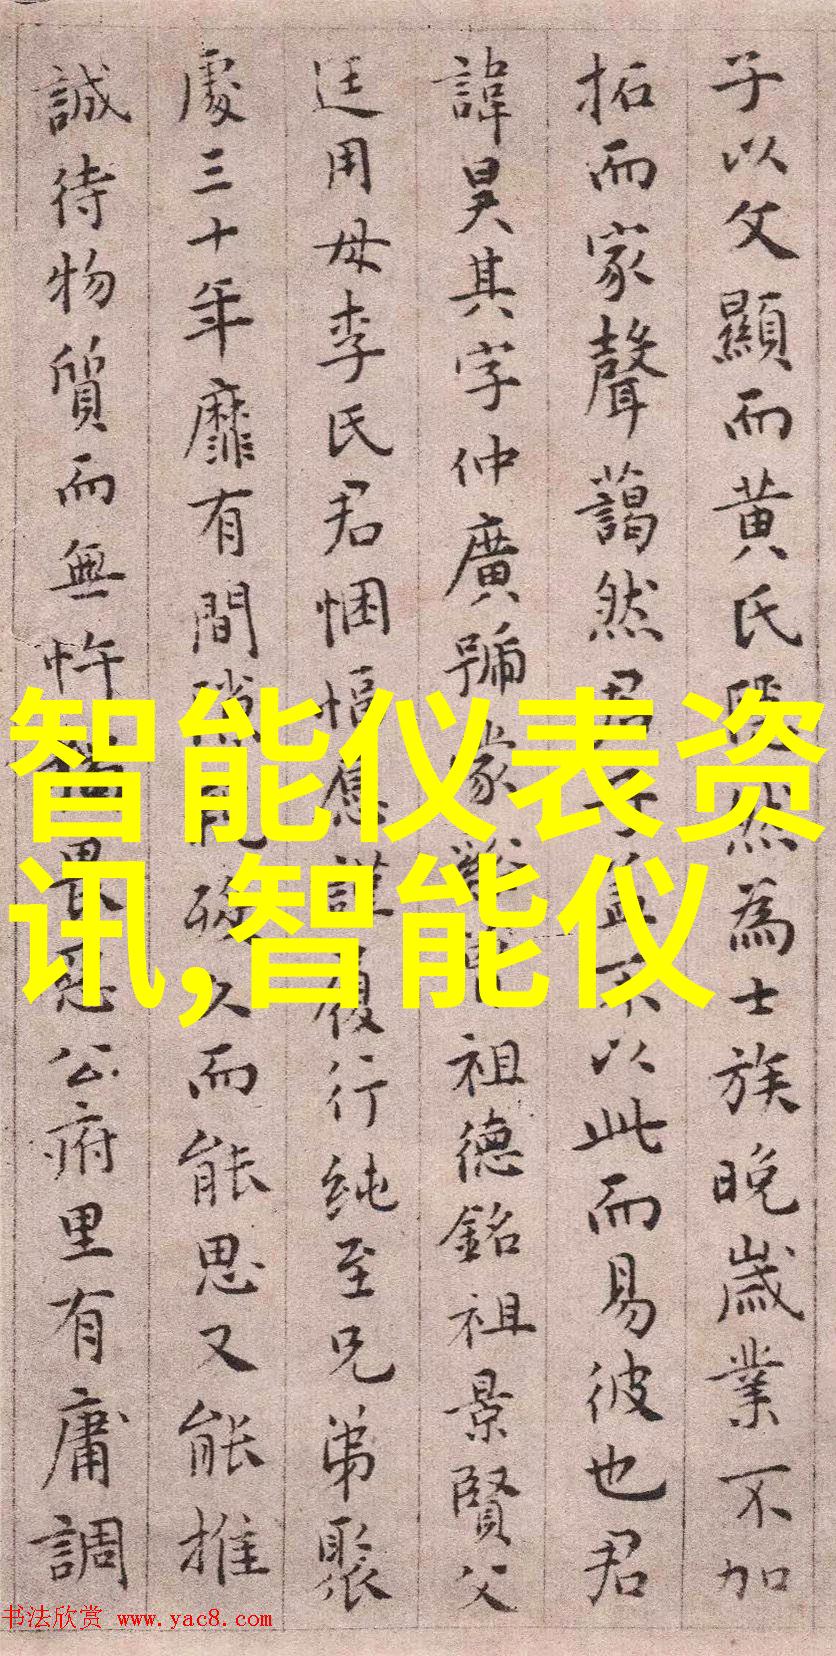 子以父顯而黄氏 然為士族晚歲業不加
拓而家聲藹然君子蓋不以此而易彼也君
諱昊其字仲廣號蒙 祖德銘祖景賢父
廷用母李氏君悃愊 謹履行純至兄弟聚
處三十年靡有間隙 久而能思又能推
誠待物質而無忤 畏 公府里有庸調
智能仪表资
讯,智能仪
书法欣赏 www.yac8.com